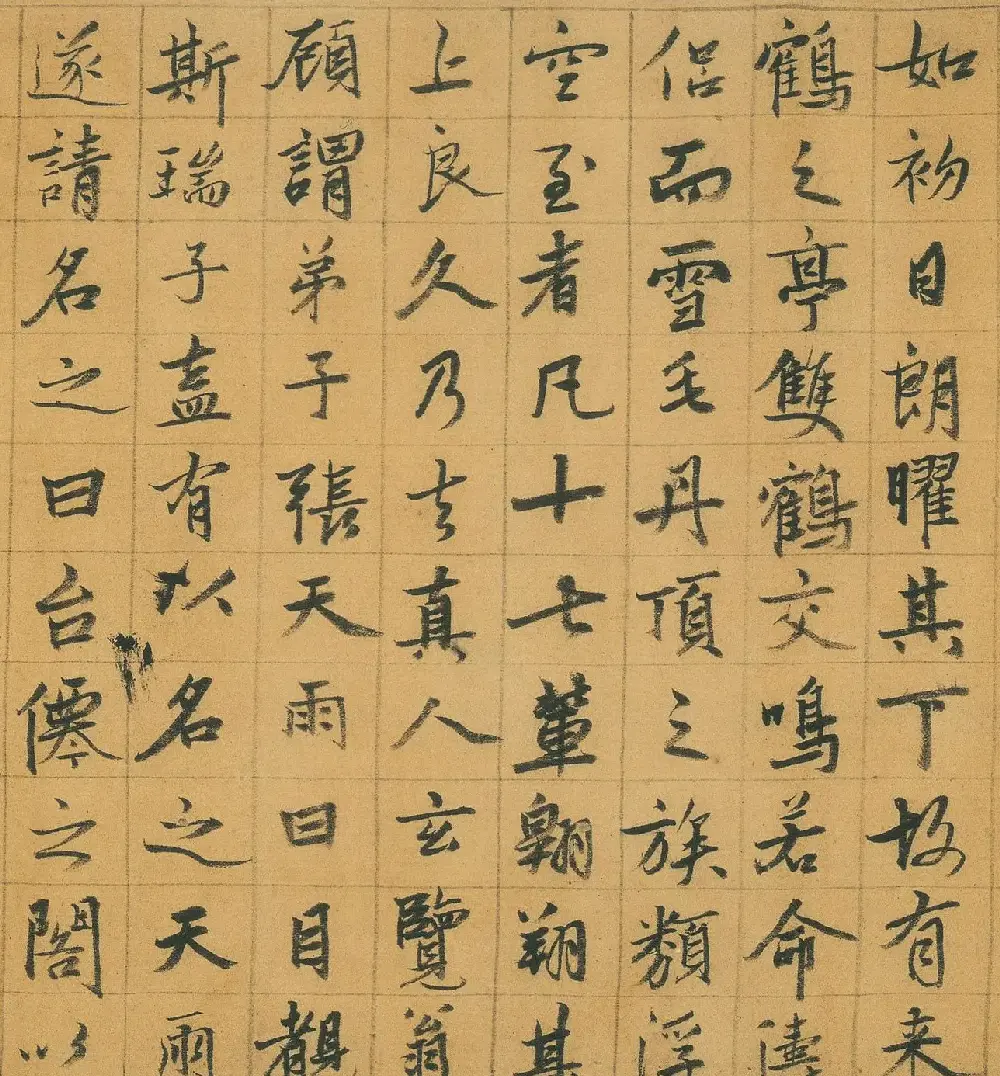 如初日朗曜其下故有来
鶴之亭雙鶴交鳴若命儔
侣而雪毛丹頂之族類浮
空至者凡十七輩翱翔其
上良久乃去真人玄覽翁
顧謂弟子張天雨曰目覩
斯瑞子盍有以名之天雨
遂請名之曰台僊之閣以